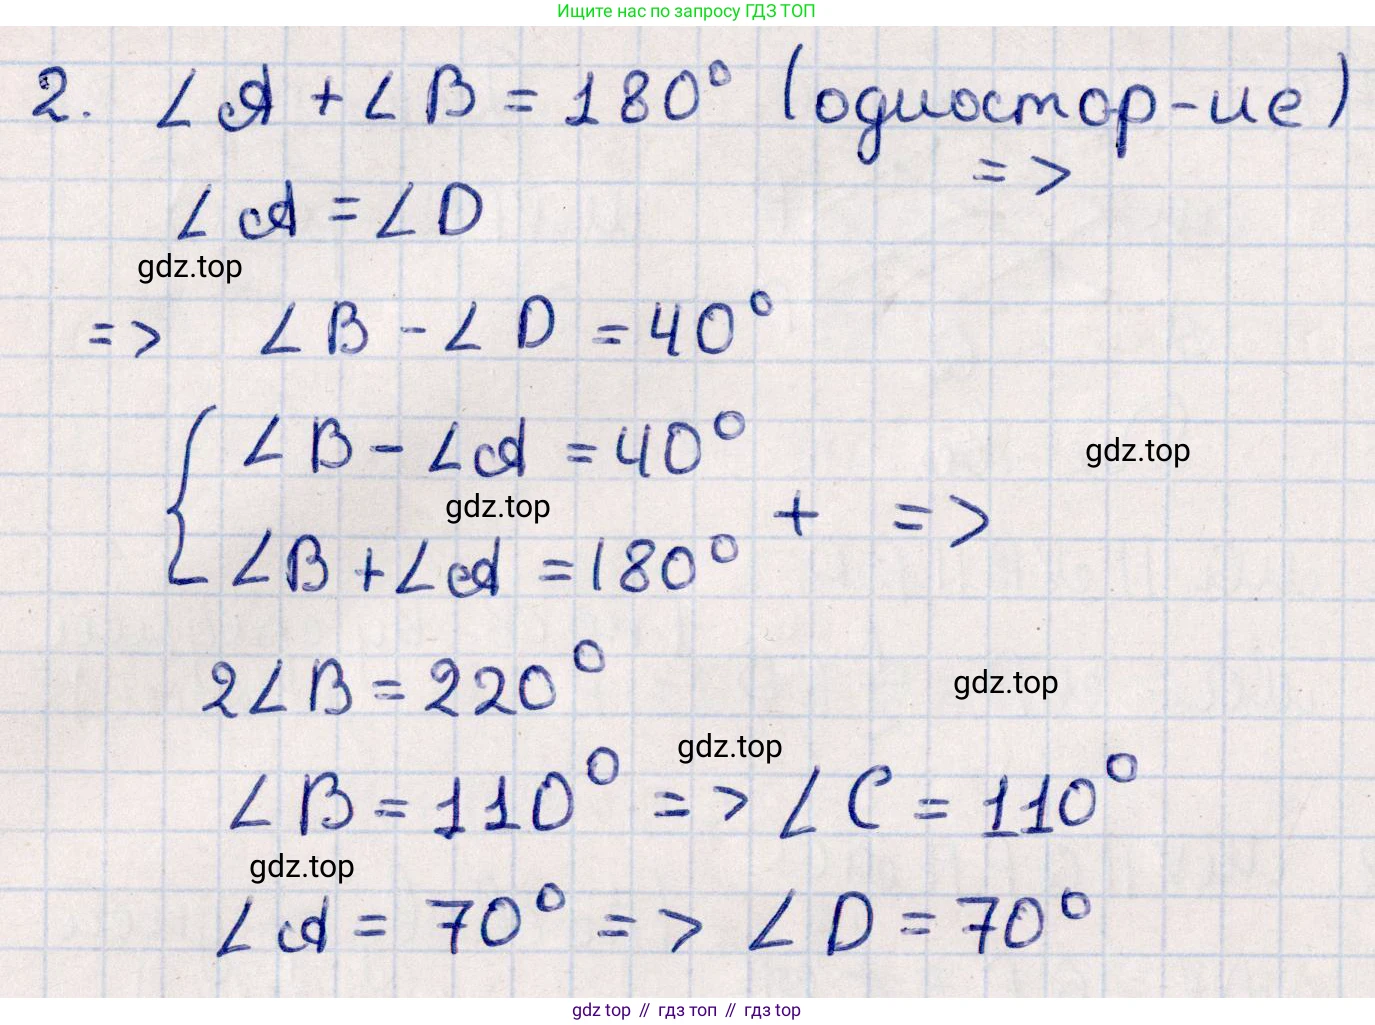 Ищите нас по запросу ГДЗ ТОП
2. ∠A + ∠B = 180° (одностор-ие)
=>
∠A = ∠D
gdz.top
=> ∠B - ∠D = 40°
{ ∠B - ∠A = 40°
gdz.top
gdz.top
+ =>
∠B + ∠A = 180°
2∠B = 220°
gdz.top
gdz.top
∠B = 110° => ∠C = 110°
gdz.top
∠A = 70° => ∠D = 70°
gdz top // гдз топ // гдз top